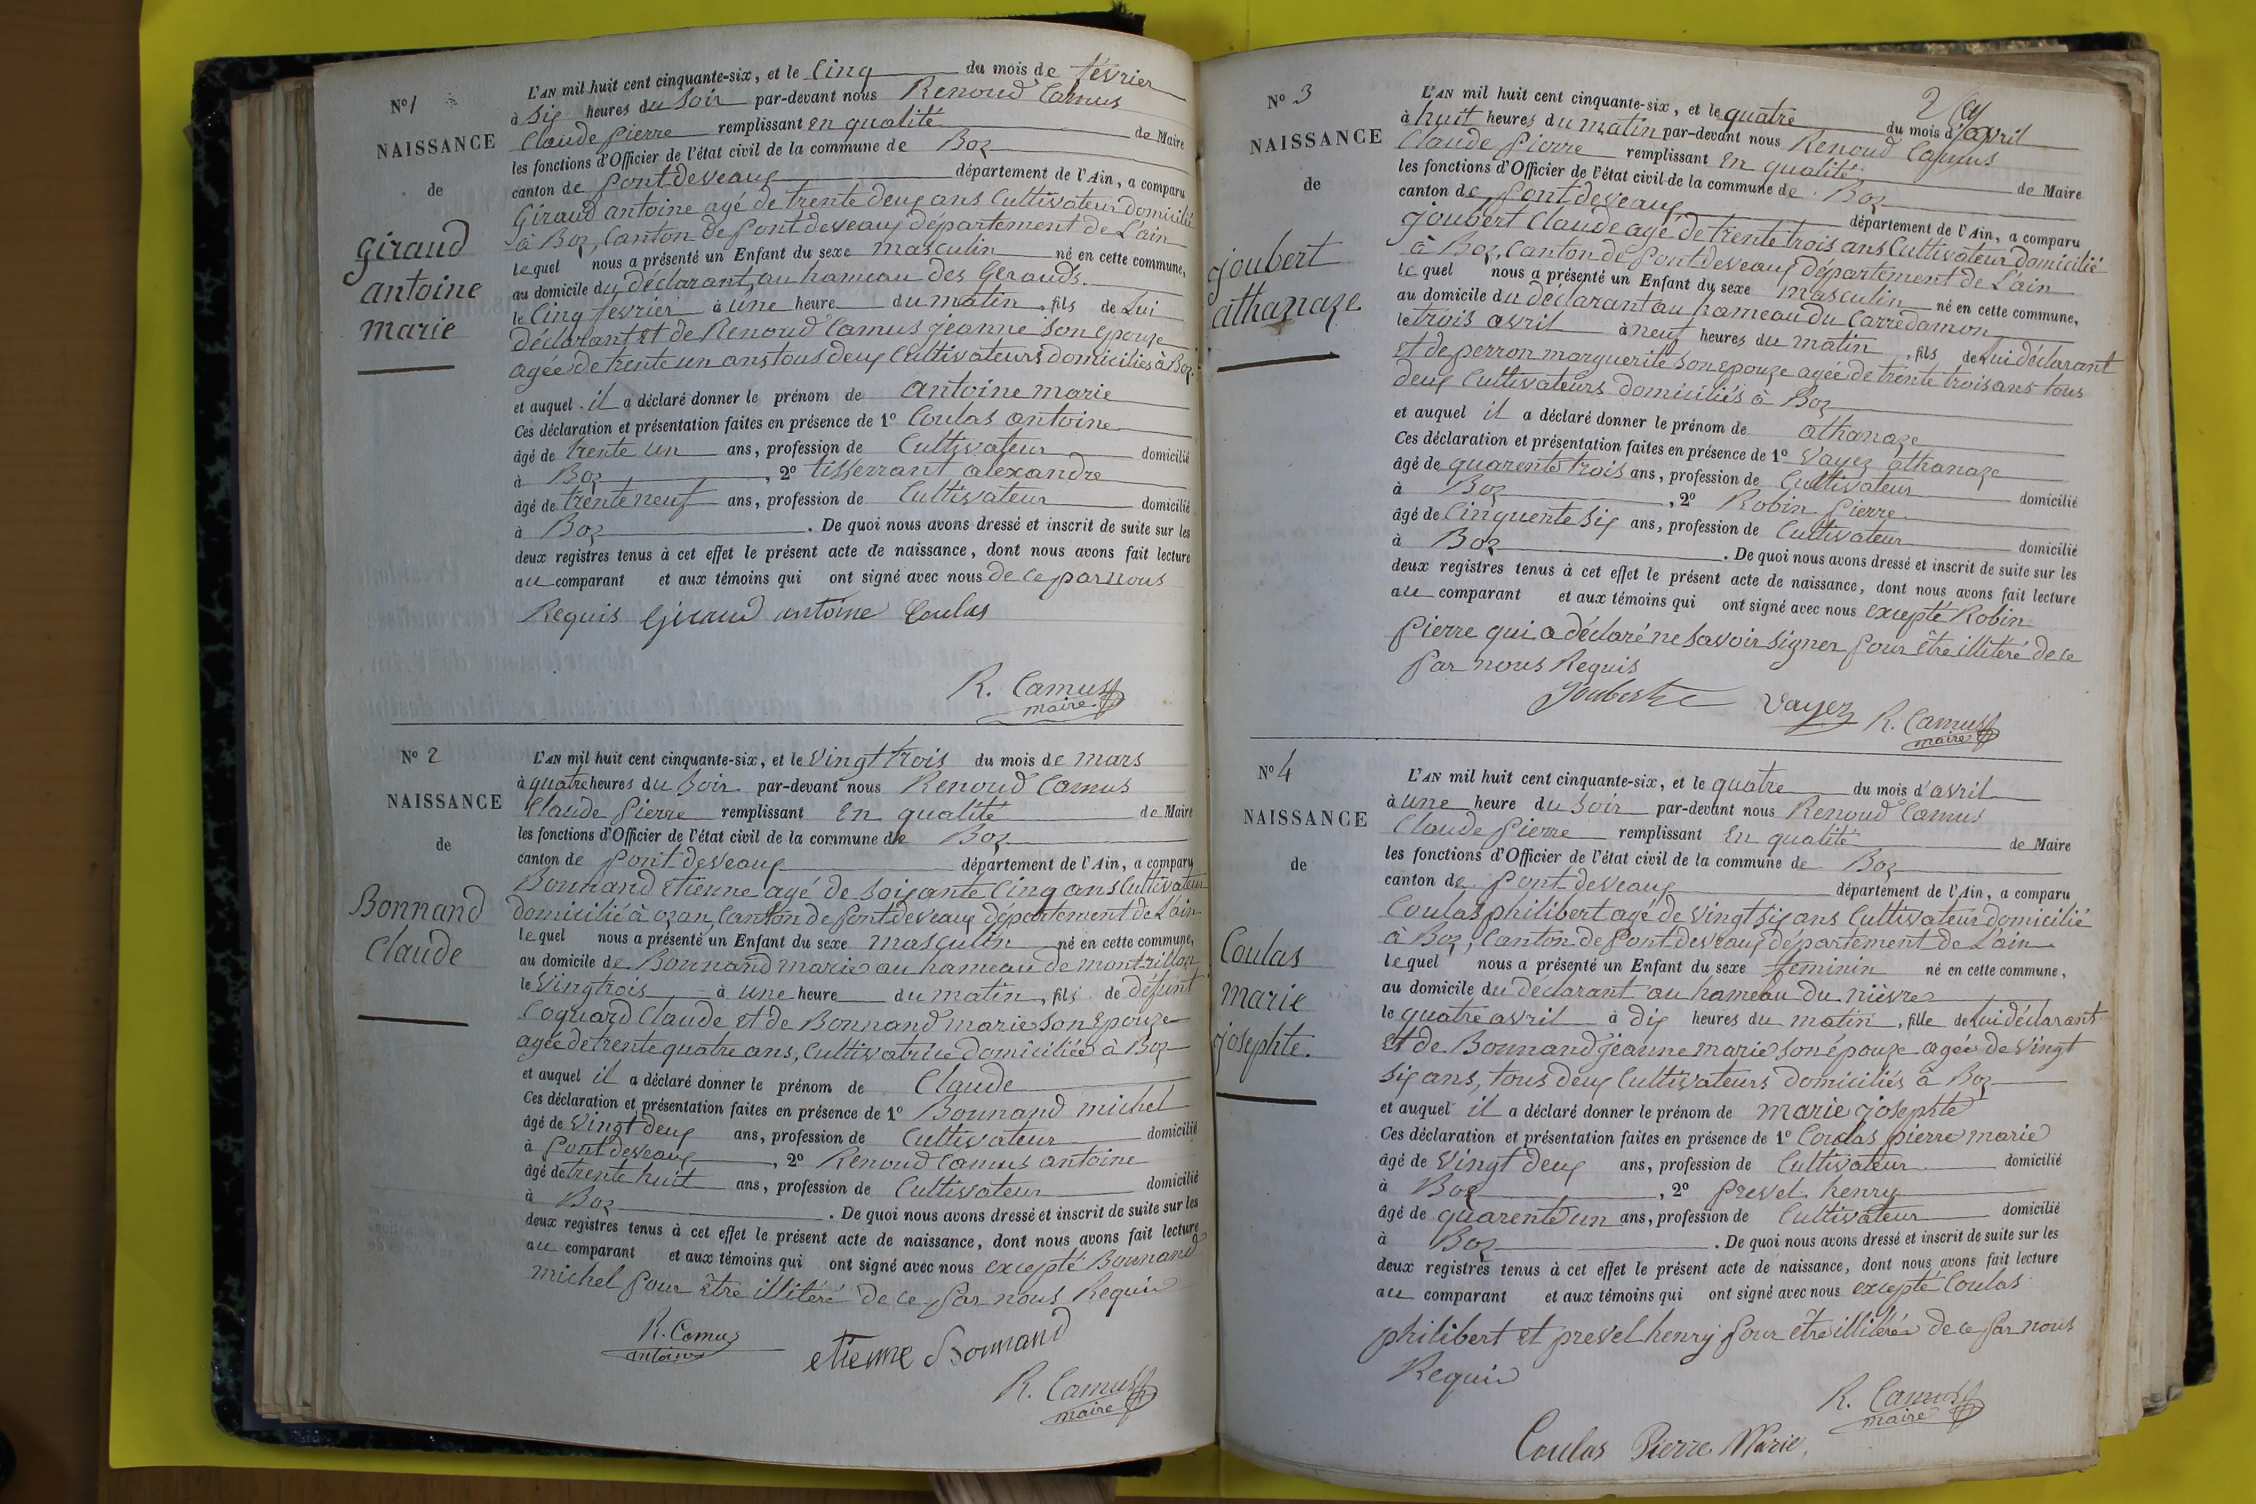 N° 1
NAISSANCE
de
Giraud
antoine
marie
L'AN mil huit cent cinquante-six, et le Cinq du mois de février
à Six heures du Soir par-devant nous Renoud Camus
Claude Pierre remplissant En qualité de Maire
les fonctions d'Officier de l'état civil de la commune de Boz
canton de Pontdevaux département de l'Ain, a comparu
Giraud antoine agé de trente deux ans Cultivateur domicilié
à Boz, Canton de Pontdevaux département de L'ain
lequel nous a présenté un Enfant du sexe masculin né en cette commune,
au domicile du déclarant, au hameau des Gerauds.
le Cinq février à une heure du matin, fils de Lui
déclarant et de Renoud Camus jeanne son epouze
agée de trente un ans tous deux Cultivateurs domiciliés à Boz.
et auquel il a déclaré donner le prénom de antoine marie
Ces déclaration et présentation faites en présence de 1° Coulas antoine
âgé de trente un ans, profession de Cultivateur domicilié
à Boz, 2° tisserrant alexandre
âgé de trente neuf ans, profession de Cultivateur domicilié
à Boz. De quoi nous avons dressé et inscrit de suite sur les
deux registres tenus à cet effet le présent acte de naissance, dont nous avons fait lecture
au comparant et aux témoins qui ont signé avec nous de ce par nous
Requis Giraud antoine Coulas
R. Camus
maire
N° 2
NAISSANCE
de
Bonnand
Claude
L'AN mil huit cent cinquante-six, et le vingt trois du mois de mars
à quatre heures du Soir par-devant nous Renoud Camus
Claude Pierre remplissant En qualité de Maire
les fonctions d'Officier de l'état civil de la commune de Boz
canton de Pont deveaux département de l'Ain, a comparu
Bonnand Etienne agé de Soixante Cinq ans Cultivateur
domicilié à ozan, Canton de Pontdeveaux département de L'ain
lequel nous a présenté un Enfant du sexe masculin né en cette commune,
au domicile de Bonnand marie au hameau de montrillon
le Vingtrois à une heure du matin, fils de défunt
Coquard Claude et de Bonnand marie son Epouze
agée de trente quatre ans, Cultivatrice domiciliée à Boz
et auquel il a déclaré donner le prénom de Claude
Ces déclaration et présentation faites en présence de 1° Bonnand michel
âgé de Vingt deux ans, profession de Cultivateur domicilié
à Pontdeveaux, 2° Renoud Camus antoine
âgé de trente huit ans, profession de Cultivateur domicilié
à Boz. De quoi nous avons dressé et inscrit de suite sur les
deux registres tenus à cet effet le présent acte de naissance, dont nous avons fait lecture
au comparant et aux témoins qui ont signé avec nous excepté Bonnand
michel pour être illitéré de ce par nous Requis
R. Camus
antoine
etienne Bonnand
R. Camus
maire
2
N° 3
NAISSANCE
de
joubert
athanaze
L'AN mil huit cent cinquante-six, et le quatre du mois d'avril
à huit heures du matin par-devant nous Renoud Camus
Claude Pierre remplissant En qualité de Maire
les fonctions d'Officier de l'état civil de la commune de Boz
canton de Pont deveaux département de l'Ain, a comparu
joubert Claude agé de trente trois ans Cultivateur domicilié
à Boz, Canton de Pontdeveaux département de L'ain
lequel nous a présenté un Enfant du sexe masculin né en cette commune,
au domicile du déclarant au hameau du Carre damon
le trois avril à neuf heures du matin, fils de Lui déclarant
et de perron marguerite son epouze agée de trente trois ans tous
deux Cultivateurs domiciliés à Boz
et auquel il a déclaré donner le prénom de athanaze
Ces déclaration et présentation faites en présence de 1° Vayez athanaze
âgé de quarente trois ans, profession de Cultivateur domicilié
à Boz, 2° Robin Pierre
âgé de Cinquente Six ans, profession de Cultivateur domicilié
à Boz. De quoi nous avons dressé et inscrit de suite sur les
deux registres tenus à cet effet le présent acte de naissance, dont nous avons fait lecture
au comparant et aux témoins qui ont signé avec nous excepté Robin
Pierre qui a déclaré ne savoir signer pour être illitéré de ce
par nous Requis
Joubert Vayez R. Camus
maire
N° 4
NAISSANCE
de
Coulas
marie
josephte.
L'AN mil huit cent cinquante-six, et le quatre du mois d'avril
à une heure du Soir par-devant nous Renoud Camus
Claude Pierre remplissant En qualité de Maire
les fonctions d'Officier de l'état civil de la commune de Boz
canton de Pont deveaux département de l'Ain, a comparu
Coulas philibert agé de vingt six ans Cultivateur domicilié
à Boz, Canton de Pontdeveaux département de L'ain
lequel nous a présenté un Enfant du sexe féminin né en cette commune,
au domicile du déclarant au hameau du nièvre
le quatre avril à dix heures du matin, fille de Lui déclarant
et de Bonnand jeanne marie son épouze agée de vingt
six ans, tous deux Cultivateurs domiciliés à Boz
et auquel il a déclaré donner le prénom de marie josephte
Ces déclaration et présentation faites en présence de 1° Coulas pierre marie
âgé de Vingt deux ans, profession de Cultivateur domicilié
à Boz, 2° prevel henry
âgé de quarente un ans, profession de Cultivateur domicilié
à Boz. De quoi nous avons dressé et inscrit de suite sur les
deux registres tenus à cet effet le présent acte de naissance, dont nous avons fait lecture
au comparant et aux témoins qui ont signé avec nous excepté Coulas
philibert et prevel henry pour être illitérés de ce par nous
Requis
R. Camus
maire
Coulas Pierre Marie,